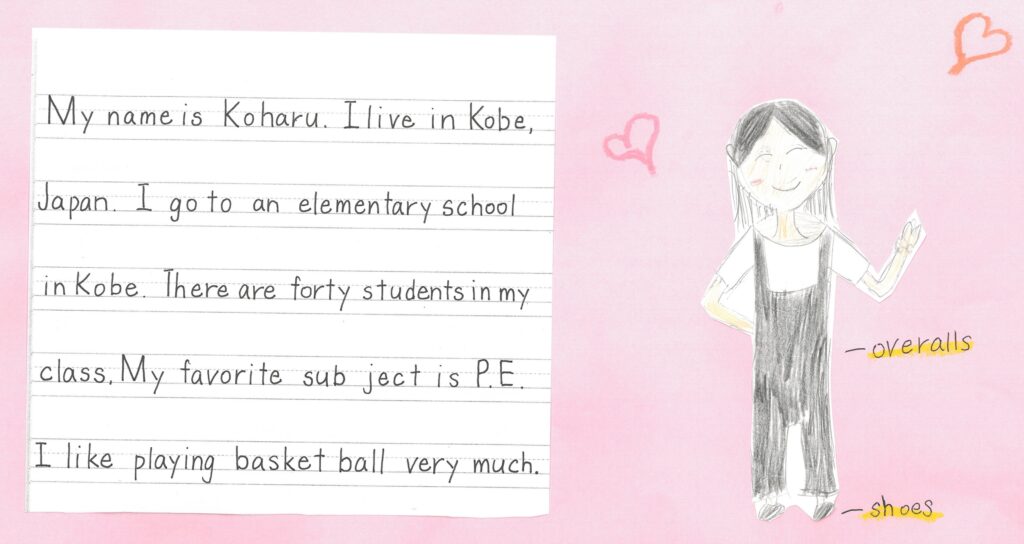 My name is Koharu. I live in Kobe,
Japan. I go to an elementary school
in Kobe. There are forty students in my
class. My favorite sub ject is P.E.
I like playing basket ball very much.
overalls
shoes